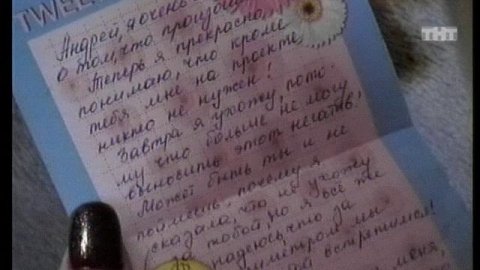 TWEE
ТНТ
Андрей, я очень
о том, что произо
Теперь я прекрасно
понимаю, что кроме
тебя мне на проекте
никто не нужен!
Завтра я ухожу, пото-
му что больше не могу
выносить этот негатив!
Может быть ты и не
поймешь почему я
сказала, что не ухожу
за тобой, но я всё же
надеюсь, что за
периметром мы
встретимся!
меня,